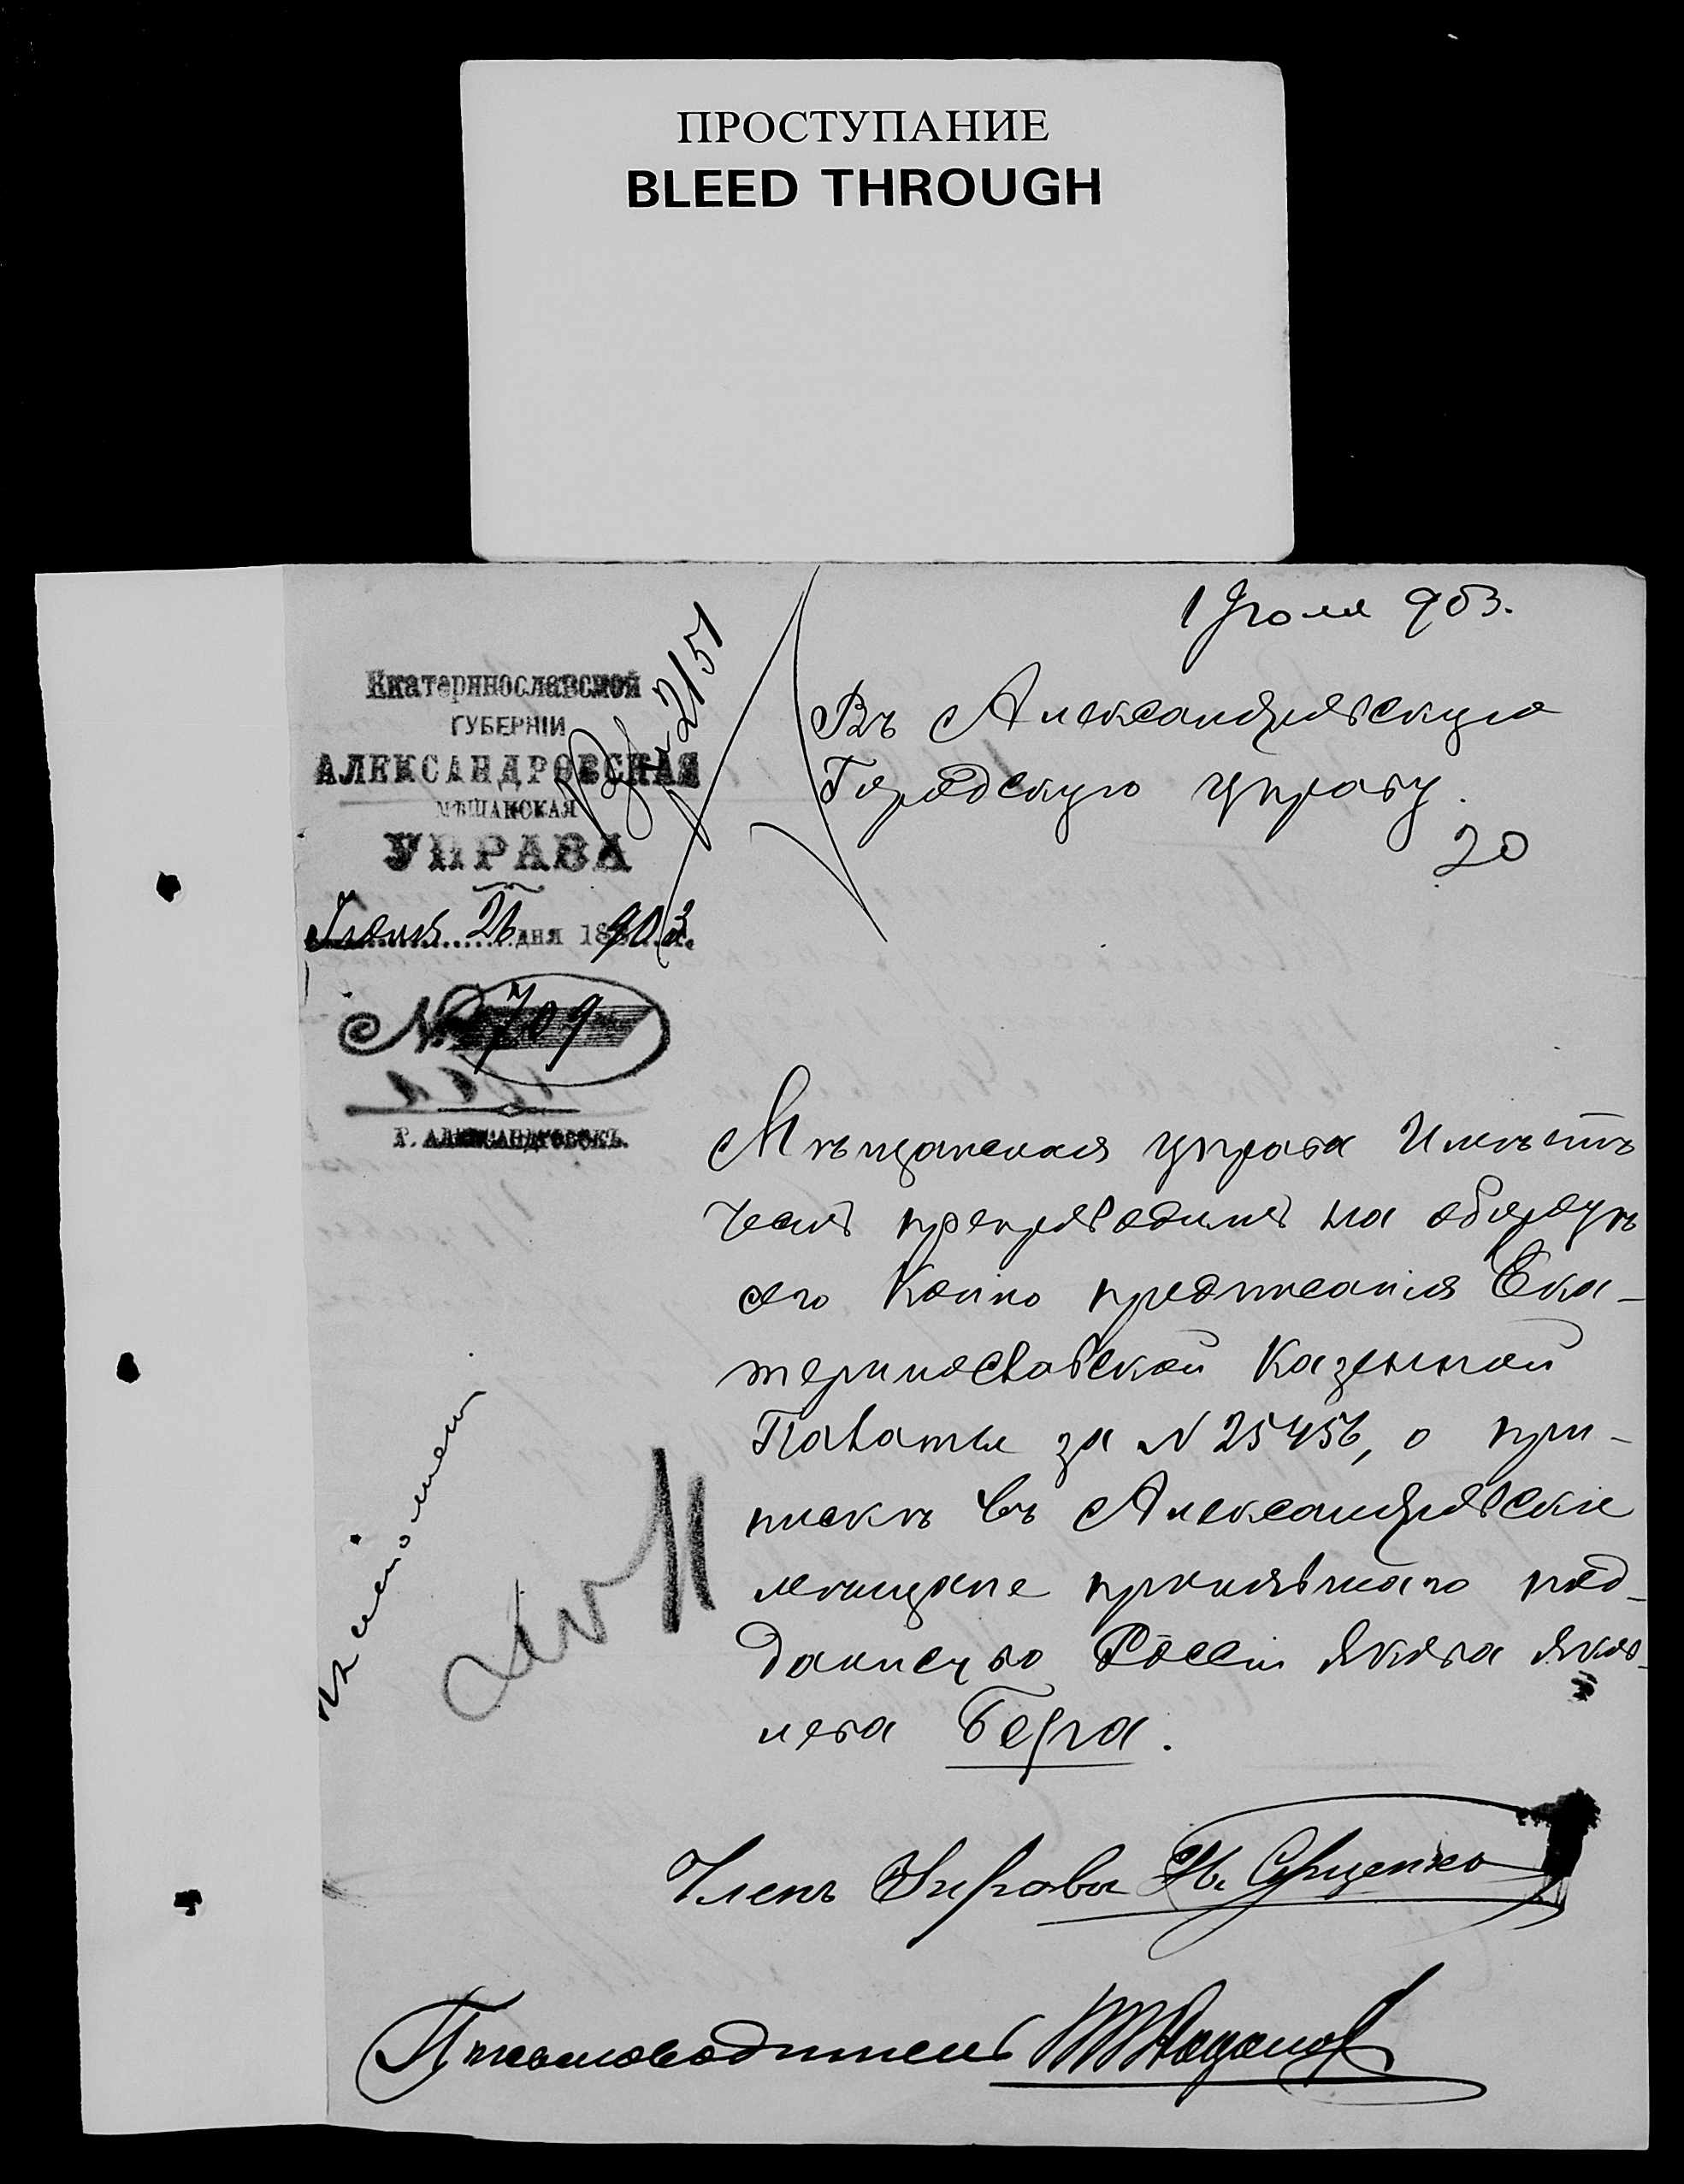 ПРОСТУПАНИЕ
BLEED THROUGH
1 Іюля 903.
Екатеринославской
ГУБЕРНІИ
АЛЕКСАНДРОВСКАЯ
МѢЩАНСКАЯ
УПРАВА
Іюня 26 дня 1903 г.
№ 709
Г. АЛЕКСАНДРОВСКЪ.
Вх 2151
Въ Александровскую
Городскую управу.
20
Мѣщанская управа имѣетъ
честь препроводить на оборотѣ
сего копію предписанія Ека-
теринославской Казенной
Палаты за № 25456, о при-
пискѣ въ Александровскіе
мѣщане принявшаго под-
данство Россіи Якова Яков-
лева Берга.
Членъ Управы
Письмоводитель